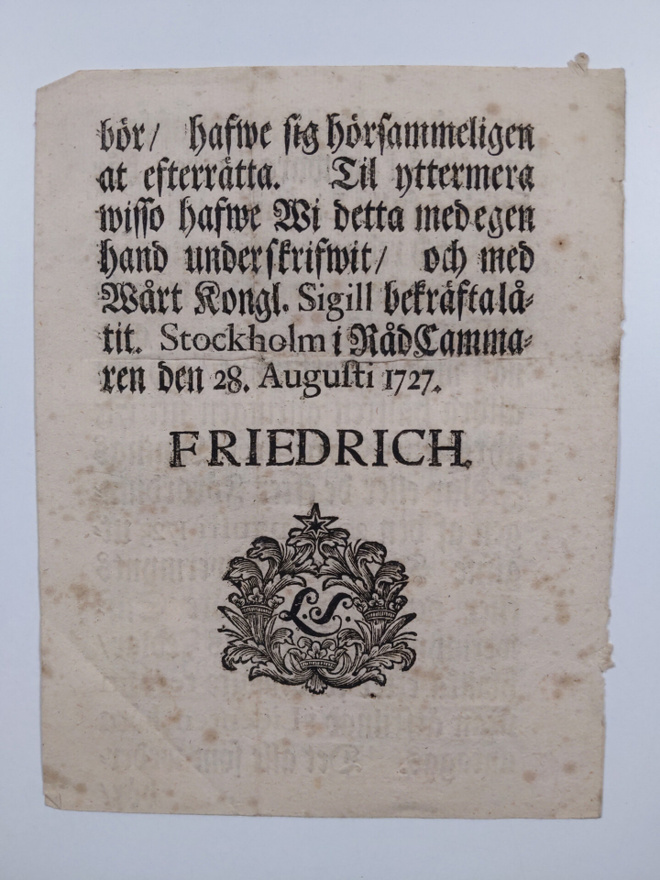 bör/ hafwe sig hörsammeligen
at efterrätta. Til yttermera
wisso hafwe Wi detta med egen
hand underskrifwit/ och med
Wårt Kongl. Sigill bekräfta lå-
tit. Stockholm i RådCamma-
ren den 28. Augusti 1727.
FRIEDRICH.
L.S.